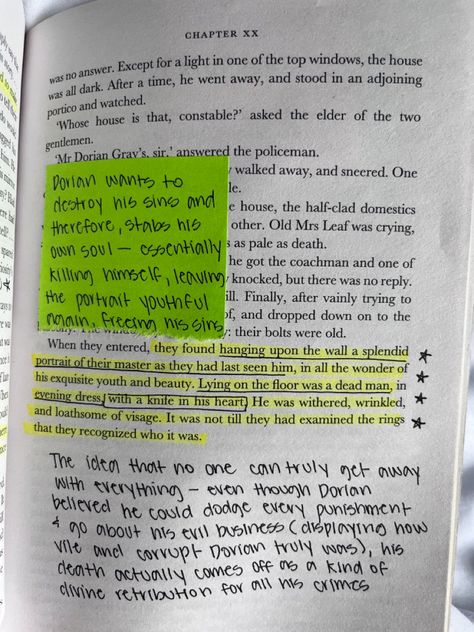 CHAPTER XX
was no answer. Except for a light in one of the top windows, the house
was all dark. After a time, he went away, and stood in an adjoining
portico and watched.
'Whose house is that, constable?' asked the elder of the two
gentlemen.
'Mr Dorian Gray's, sir.' answered the policeman.
walked away, and sneered. One
le.
e house, the half-clad domestics
other. Old Mrs Leaf was crying,
s as pale as death.
he got the coachman and one of
knocked, but there was no reply.
ill. Finally, after vainly trying to
of, and dropped down on to the
: their bolts were old.
Dorian wants to
destroy his sins and
therefore, stabs his
own soul – essentially
killing himself, leaving
the portrait youthful
again, freeing his sins
When they entered, they found hanging upon the wall a splendid
portrait of their master as they had last seen him, in all the wonder of
his exquisite youth and beauty. Lying on the floor was a dead man, in
evening dress, with a knife in his heart. He was withered, wrinkled,
and loathsome of visage. It was not till they had examined the rings
that they recognized who it was.
The idea that no one can truly get away
with everything – even though Dorian
believed he could dodge every punishment
& go about his evil business (displaying how
vile and corrupt Dorian truly was), his
death actually comes off as a kind of
divine retribution for all his crimes